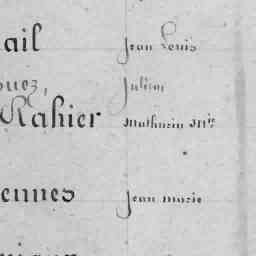 ail Jean Louis
ouez, Julien
Rahier Mathurin Mie
ennes Jean Marie